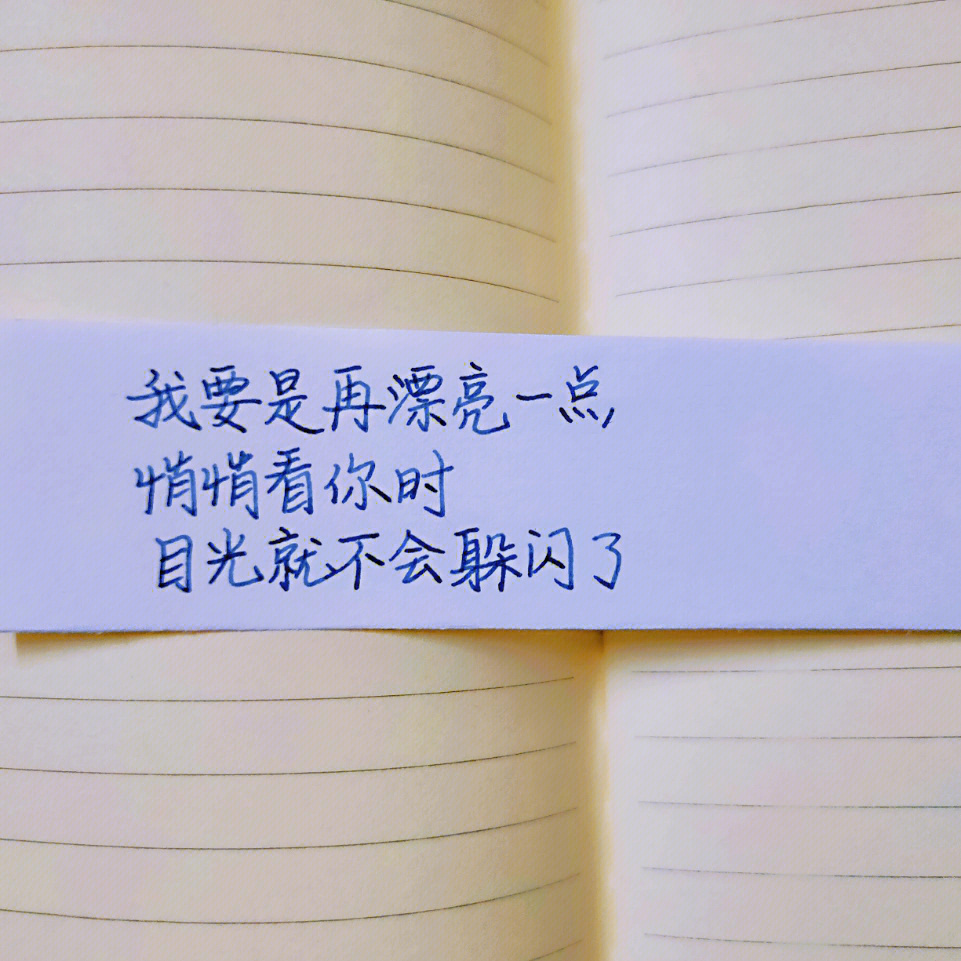 我要是再漂亮一点
悄悄看你时
目光就不会躲闪了